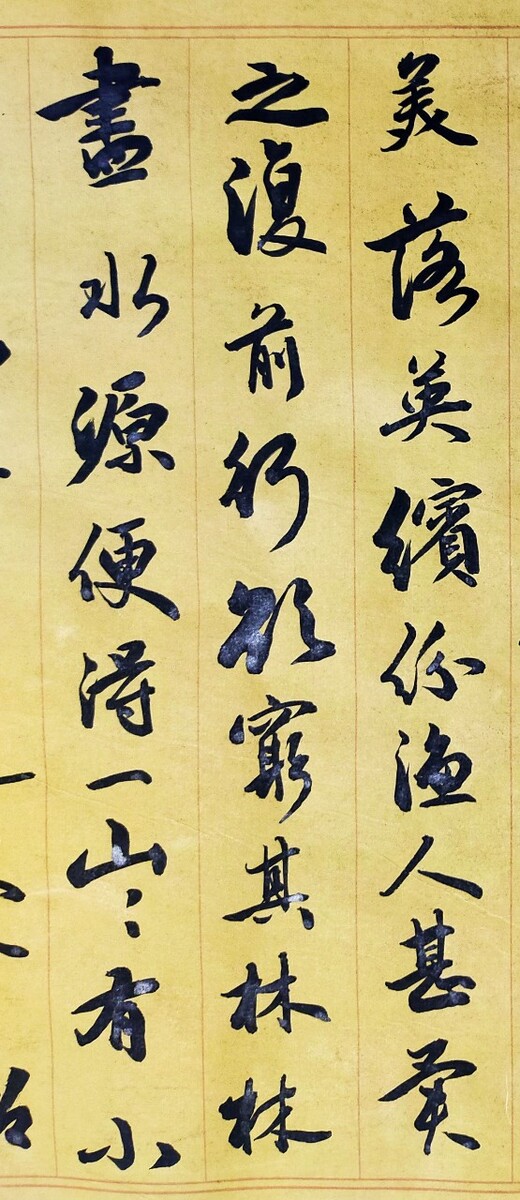 美落英繽紛漁人甚異
之復前行欲窮其林林
盡水源便得一山〻有小